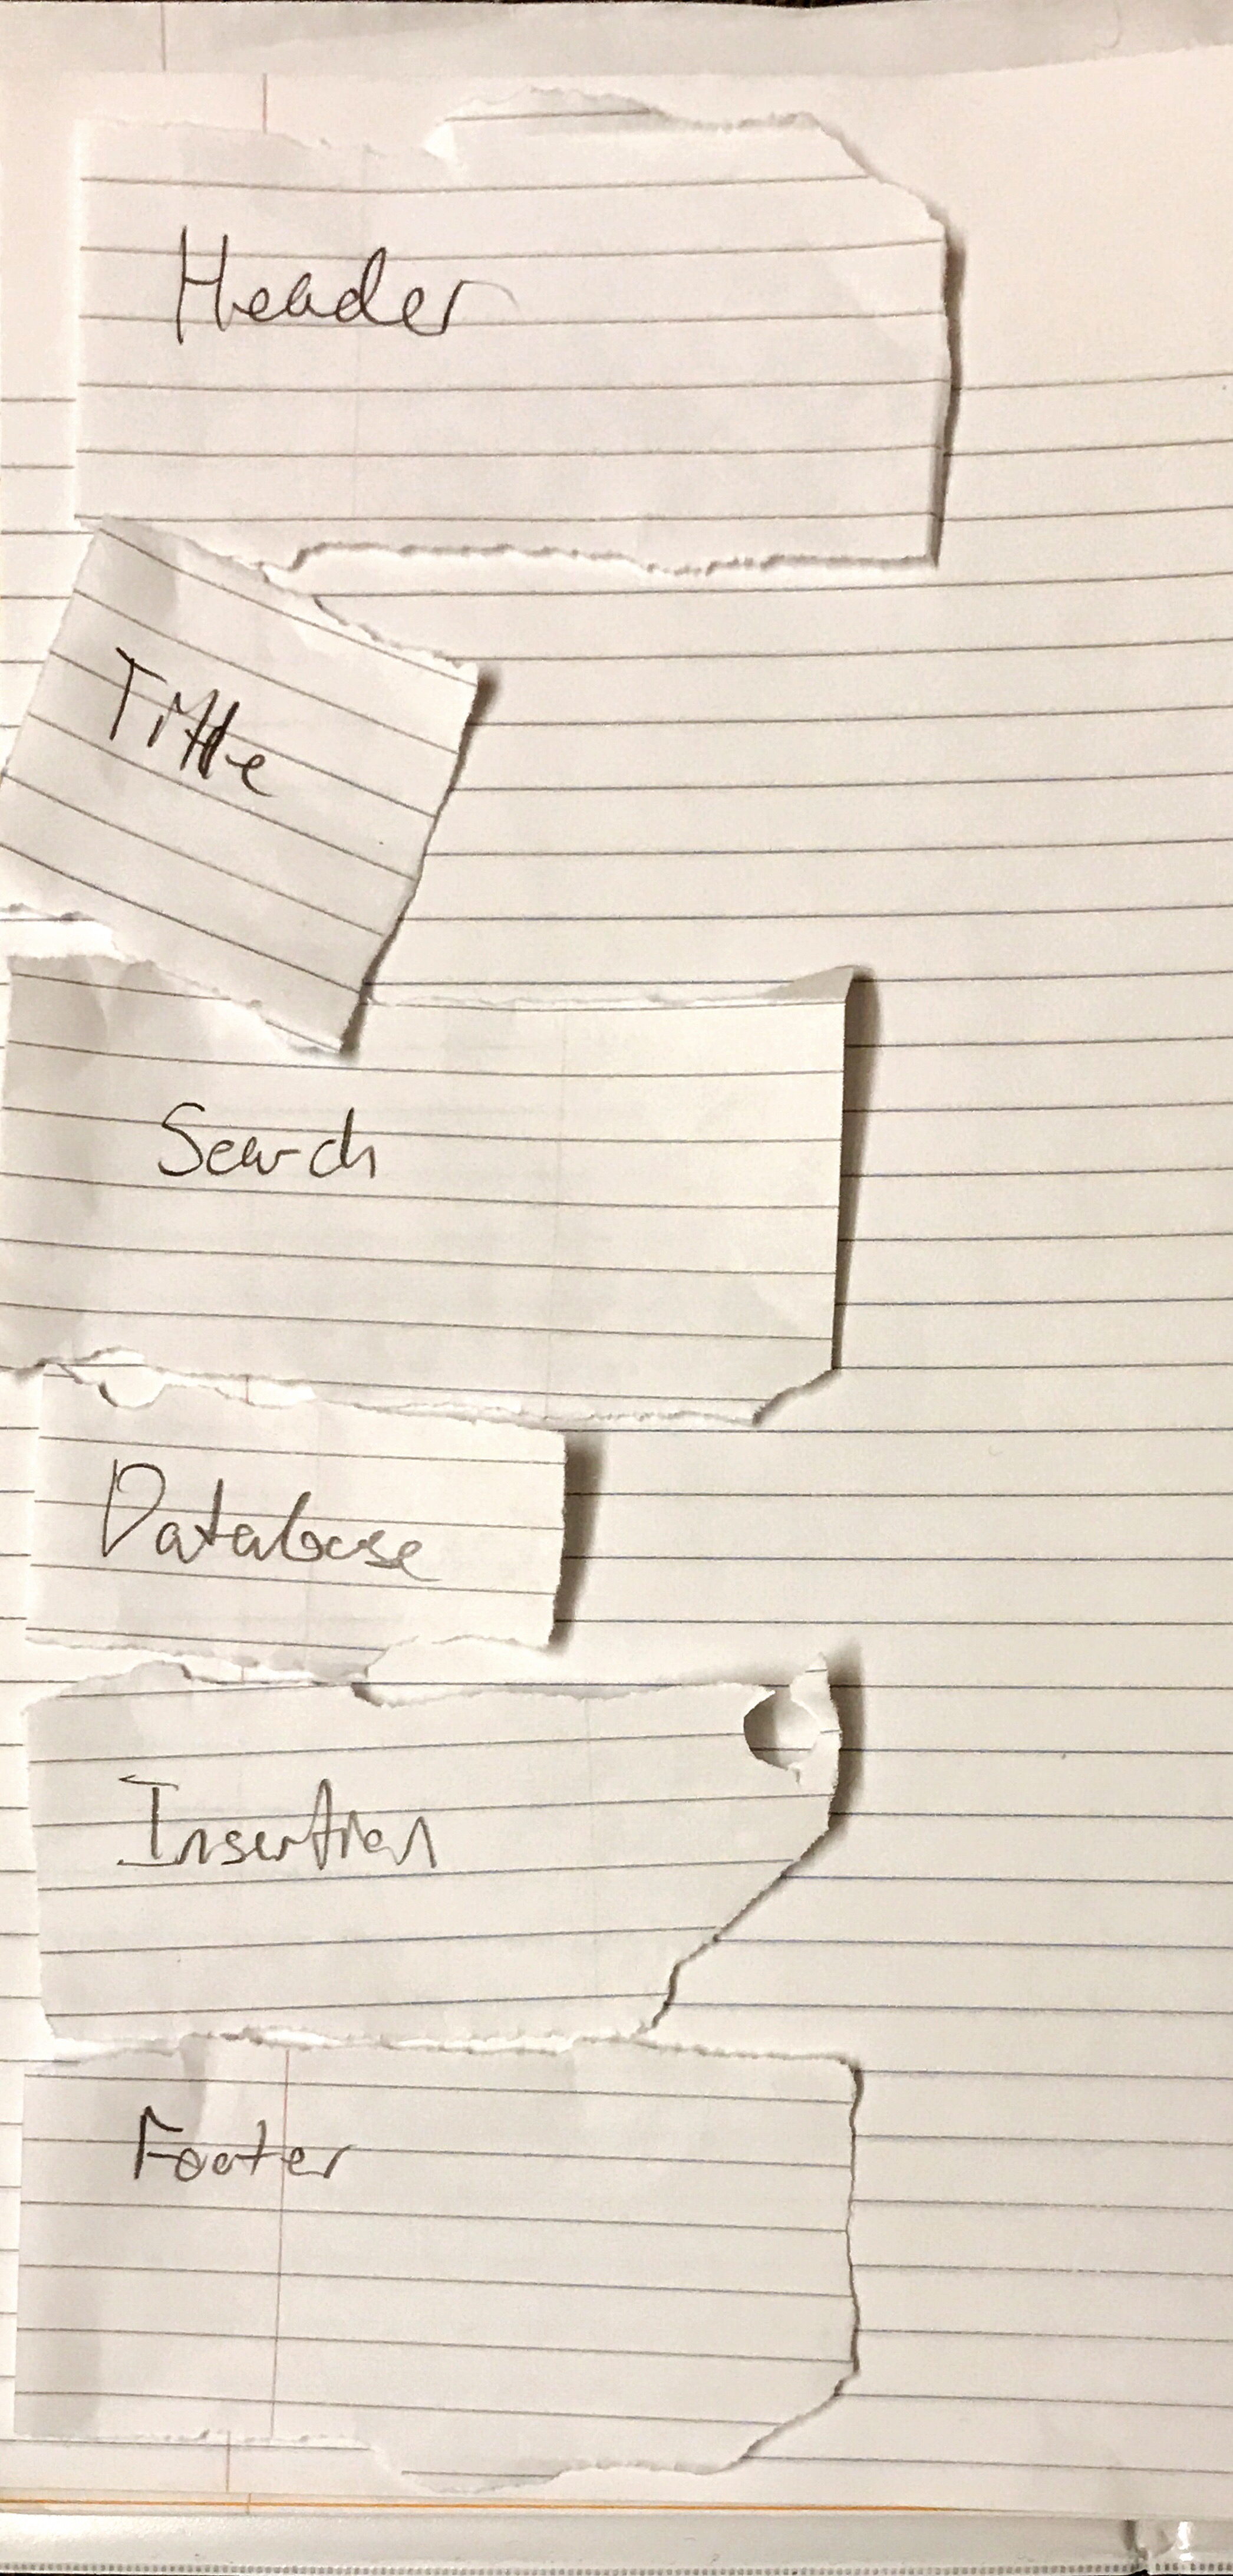 Header
Title
Search
Database
Insertion
Footer